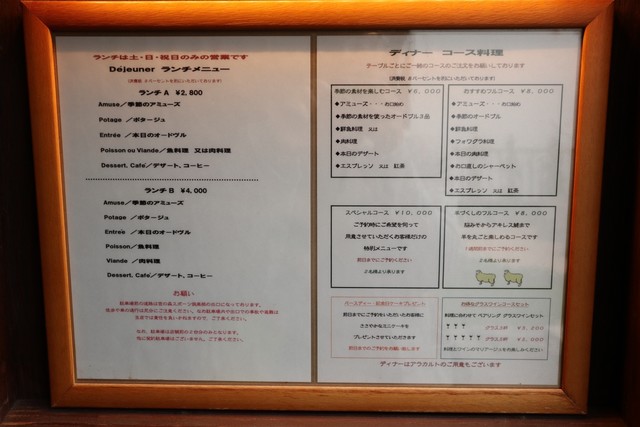 ランチは土・日・祝日のみの営業です
Déjeuner ランチメニュー
(消費税 8パーセントを別にいただいております)
ランチA ¥2,800
Amuse／季節のアミューズ
Potage ／ポタージュ
Entrée ／本日のオードヴル
Poisson ou Viande／魚料理 又は肉料理
Dessert, Café／デザート、コーヒー
ランチB ¥4,000
Amuse／季節のアミューズ
Potage ／ポタージュ
Entrée ／本日のオードヴル
Poisson／魚料理
Viande ／肉料理
Dessert, Café／デザート、コーヒー
お願い
ディナー コース料理
テーブルごとにご一緒のコースのご注文をお願いしております
(消費税 8パーセントを別にいただいております)
季節の食材を楽しむコース ¥6,000
◆アミューズ・・・お口始め
◆季節の食材を使ったオードブル2品
◆鮮魚料理 又は
◆肉料理
◆本日のデザート
◆エスプレッソ 又は 紅茶
おすすめフルコース ¥8,000
◆アミューズ・・・お口始め
◆季節のオードブル
◆鮮魚料理
◆フォワグラ料理
◆本日の肉料理
◆お口直しのシャーベット
◆本日のデザート
◆エスプレッソ 又は 紅茶
スペシャルコース ¥10,000
ご予約時にご希望を伺って
用意させていただくお客様だけの
特別メニューです
前日までにご予約ください
2名様より承ります
羊づくしのフルコース ¥8,000
脳みそからアキレス腱まで
羊を丸ごと楽しめるコースです
1週間前までにご予約ください
2名様より承ります
バースディー・記念日ケーキプレゼント
前日までにご予約をいただいたお客様に
ささやかなミニケーキを
プレゼントさせていただきます
前日までのご予約をお願い致します
お得なグラスワインコースセット
料理に合わせて ペアリング グラスワインセット
グラス3杯
グラス5杯
料理とワインのマリアージュをお楽しみください
ディナーはアラカルトのご用意もございます